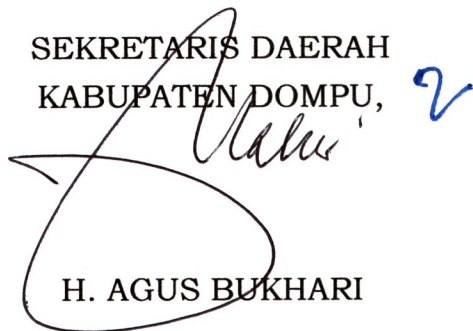 SEKRETARIS DAERAH
KABUPATEN DOMPU,
H. AGUS BUKHARI